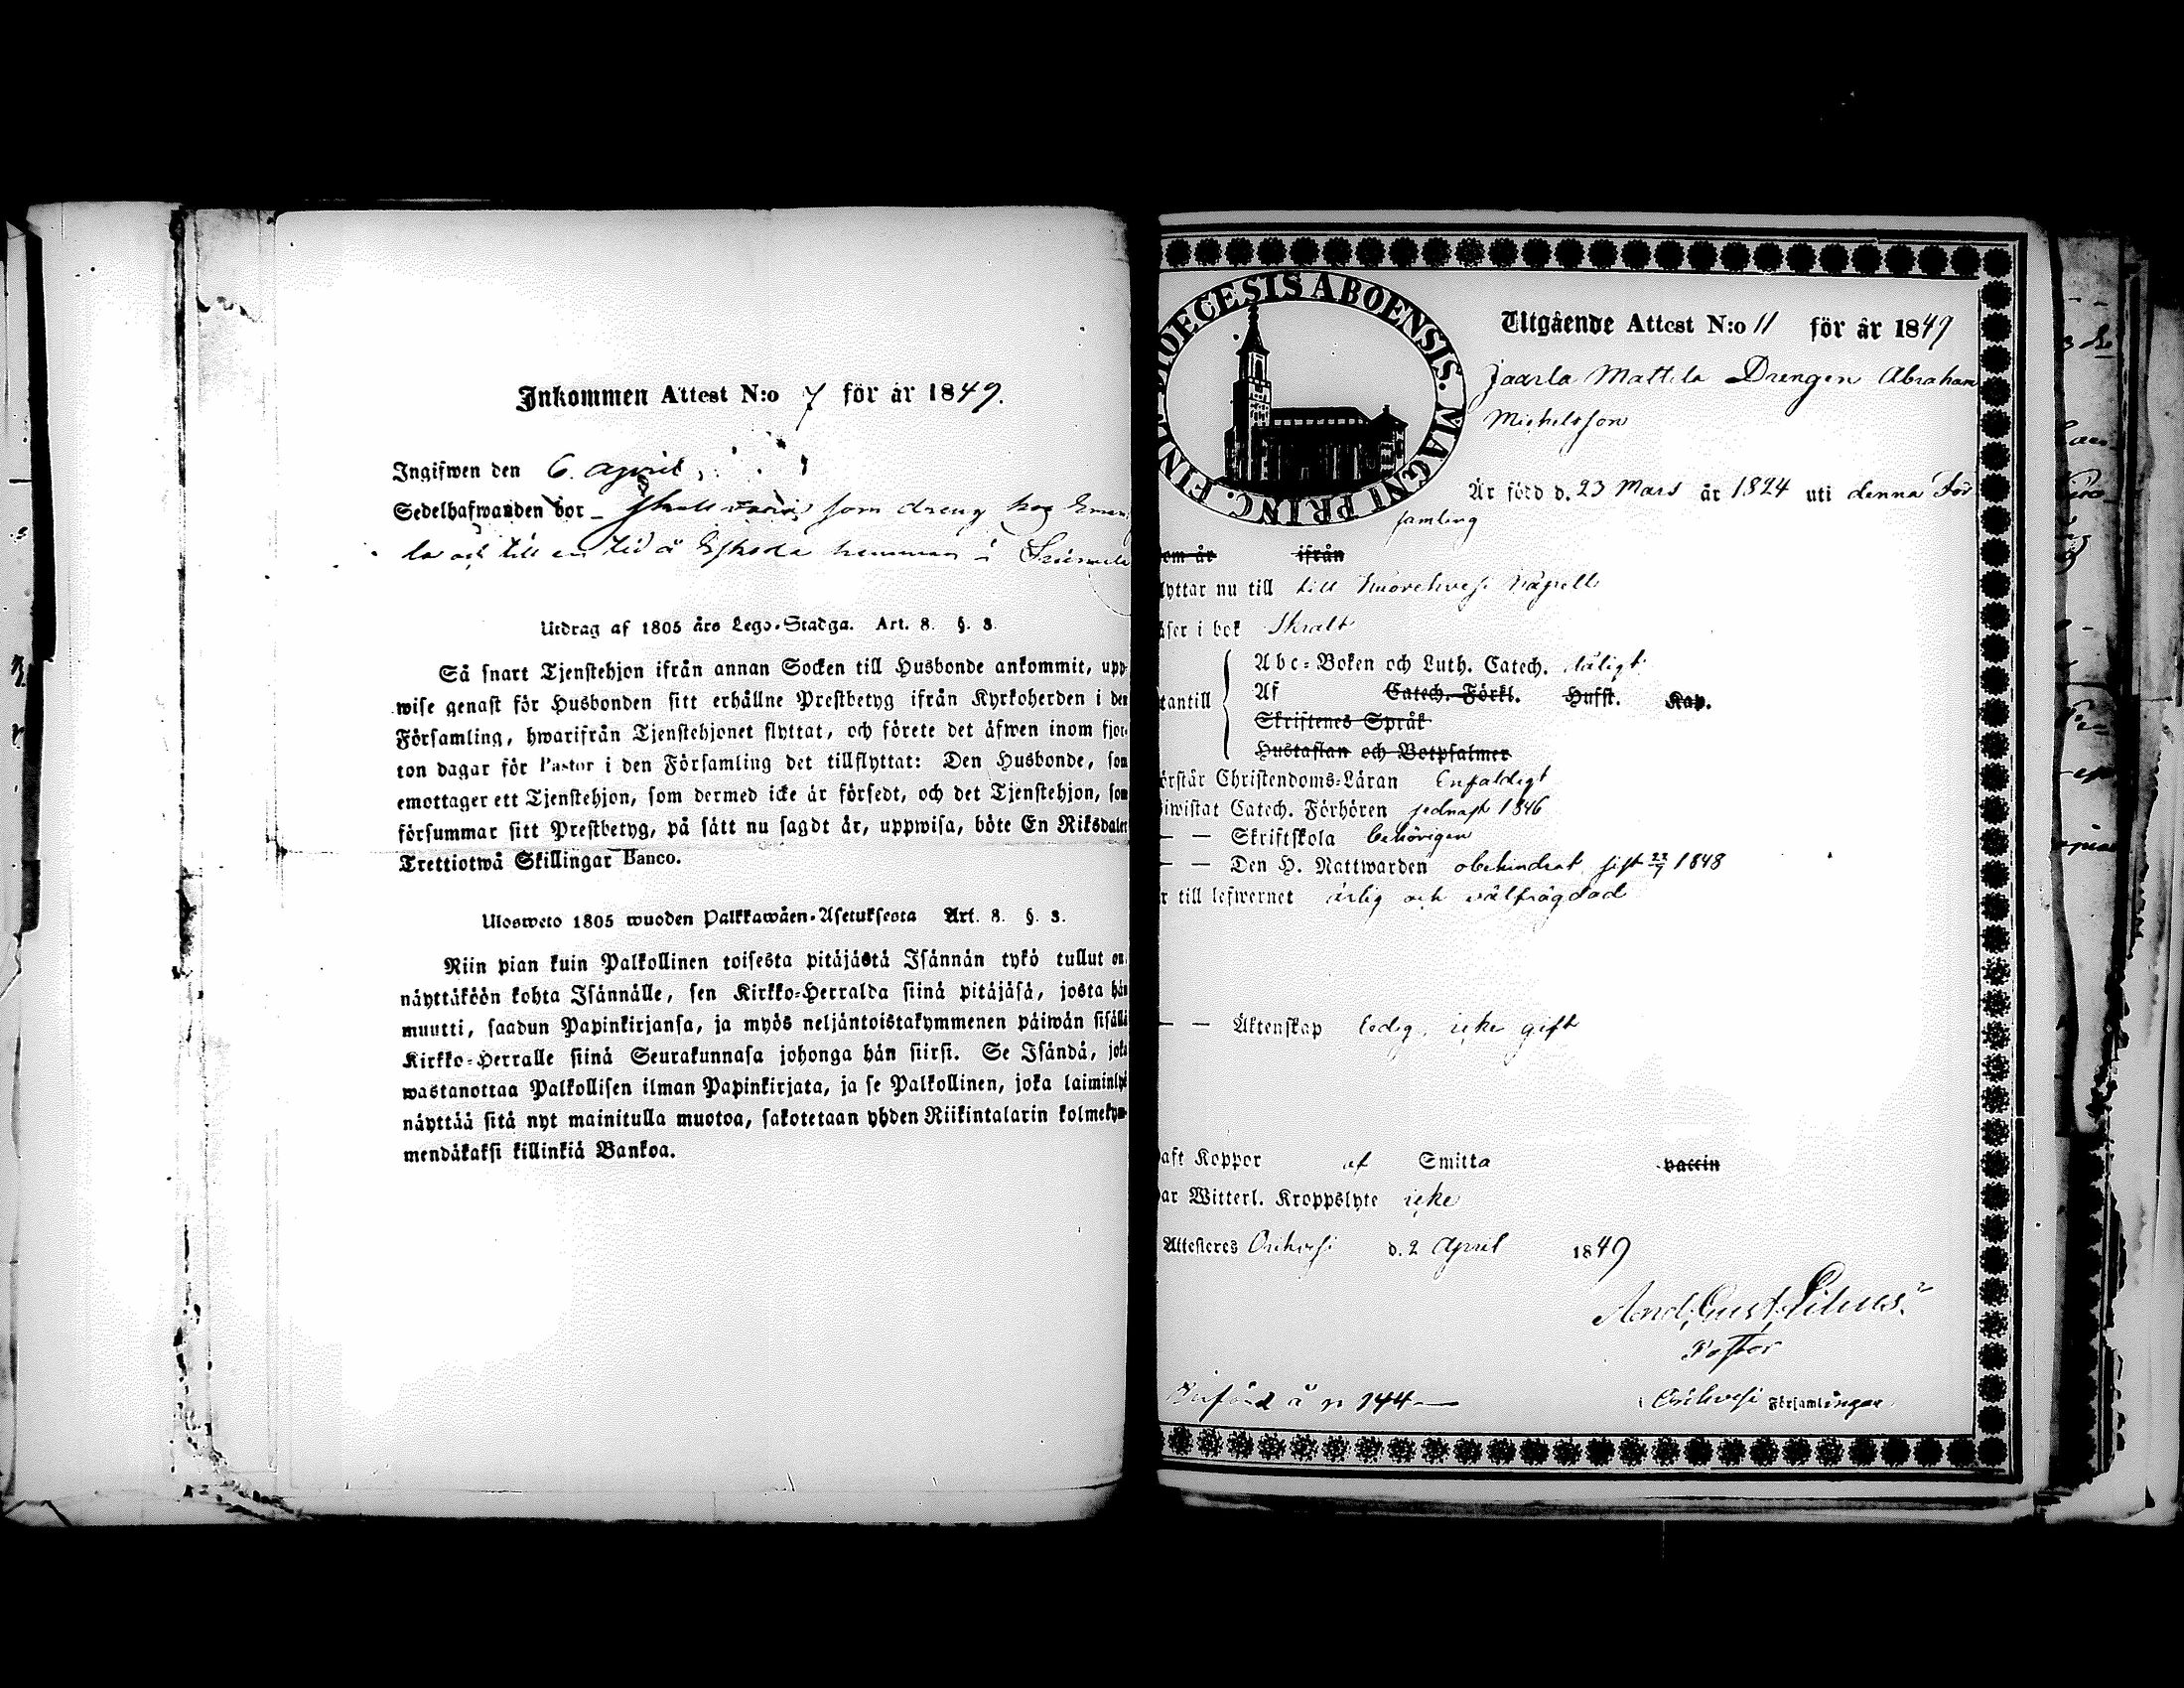 Inkommen Attest N:o 7 för år 1849.
Ingifwen den 6. april
Sedelhafwanden bor som dreng hos
la och till en tid å hemman i
Utdrag af 1805 års Lego-Stadga. Art. 8. §. 3.
Så snart Tjenstehjon ifrån annan Socken till Husbonde ankommit, upp-
wise genast för Husbonden sitt erhållne Prestbetyg ifrån Kyrkoherden i den
Församling, hwarifrån Tjenstehjonet flyttat, och förete det äfwen inom fjor-
ton dagar för Pastor i den Församling det tillflyttat: Den Husbonde, som
emottager ett Tjenstehjon, som dermed icke är försedt, och det Tjenstehjon, som
försummar sitt Prestbetyg, på sått nu sagdt är, uppwisa, böte En Riksdaler
Trettiotwå Skillingar Banco.
Ulosweto 1805 wuoden Palkkawäen-Asetuksesta Art. 8. §. 3.
Niin pian kuin Palkollinen toisesta pitäjästä Isännän tykö tullut on,
näyttäköön kohta Isännälle, sen Kirkko-Herralda siinä pitäjäsä, josta hän
muutti, saadun Papinkirjansa, ja myös neljäntoistakymmenen päiwän sisällä
Kirkko-Herralle siinä Seurakunnasa johonga hän siirsi. Se Isändä, joka
wastanottaa Palkollisen ilman Papinkirjata, ja se Palkollinen, joka laiminlyö
näyttää sitä nyt mainitulla muotoa, sakotetaan yhden Riikintalarin kolmekym-
mendäkaksi killinkiä Bankoa.
DIOECESIS ABOENSIS. MAGNI PRINC. FINL
Utgående Attest N:o 11 för år 1849
Jaarla Mattila Drengen Abraham
Michelsson
Är född d. 23 Mars år 1824 uti denna För
samling
om år ifrån
lyttar nu till till Kuorehvesi Kapell
äser i bok Skralt
tantill
Abc-Boken och Luth. Catech. dåligt
Af Catech. Förkl. Husst. Kap.
Skriftenes Språk
Hustaflan och Botpsalmer
örstår Christendoms-Läran Enfaldigt
iwistat Catech. Förhören sednast 1846
— — Skriftskola behörigen
— — Den H. Nattwarden obehindrat, sist 22/7 1848
r till lefwernet ärlig och välfrägdad
— — Äktenskap ledig, icke gift
aft Koppor af Smitta vaccin
ar Witterl. Kroppslyte icke
Attesteres Orihvesi d. 2 April 1849
Pastor
Införd å p 144—
i Orihvesi Församlingar